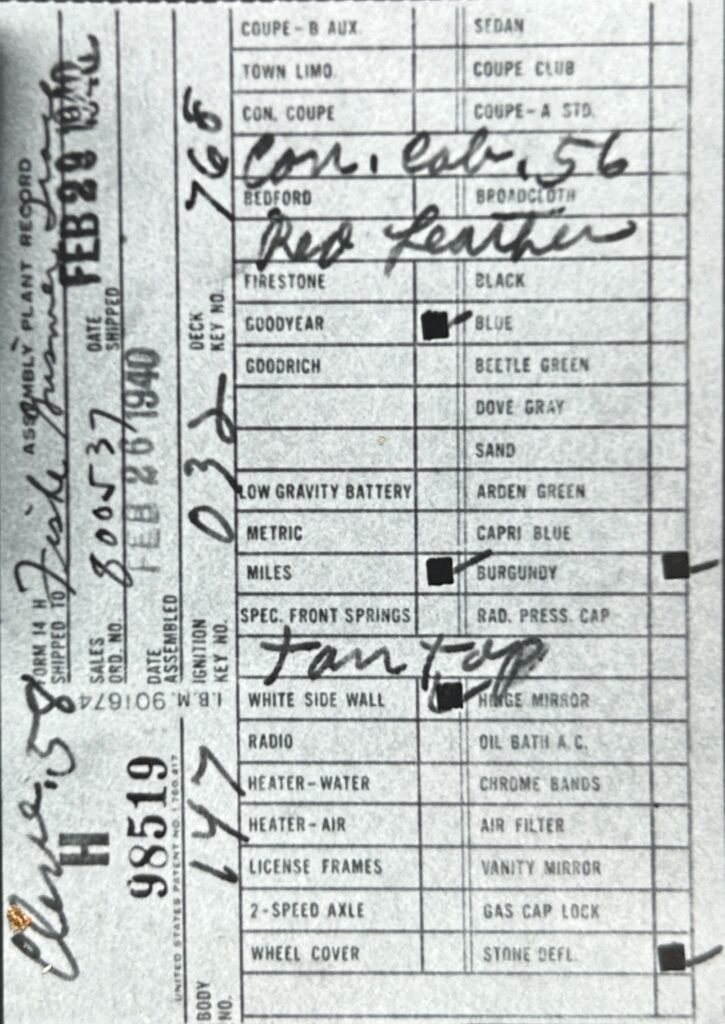 COUPE-B AUX. SEDAN
TOWN LIMO. COUPE CLUB
CON. COUPE COUPE-A STD.
Con. Cab. 56
BEDFORD BROADCLOTH
Red Leather
FIRESTONE BLACK
GOODYEAR BLUE
GOODRICH BEETLE GREEN
DOVE GRAY
SAND
LOW GRAVITY BATTERY ARDEN GREEN
METRIC CAPRI BLUE
MILES BURGUNDY
SPEC. FRONT SPRINGS RAD. PRESS. CAP
tan top
WHITE SIDE WALL HINGE MIRROR
RADIO OIL BATH A.C.
HEATER-WATER CHROME BANDS
HEATER-AIR AIR FILTER
LICENSE FRAMES VANITY MIRROR
2-SPEED AXLE GAS CAP LOCK
WHEEL COVER STONE DEFL.
FORM 14 H ASSEMBLY PLANT RECORD
SHIPPED TO
58
H 98519
SALES ORD. NO. 800537
DATE SHIPPED FEB 28 1940
DATE ASSEMBLED FEB 26 1940
I.B.M. 901674
UNITED STATES PATENT NO. 1,780,417
BODY NO. 147
IGNITION KEY NO. 032
DECK KEY NO. 768